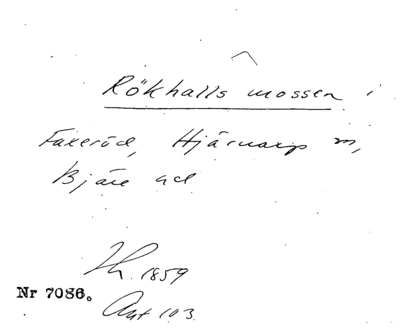 Rökhalls mossen i
Faxeröd, Hjärnarp sn,
Bjäre hd
Th. 1859
Nr 7086.
Ant 103